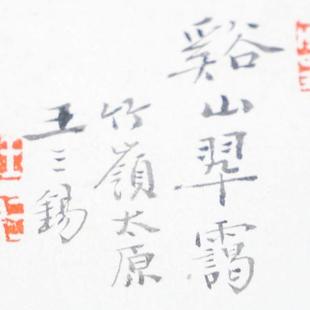 谿山翠靄
竹嶺太原
王三錫